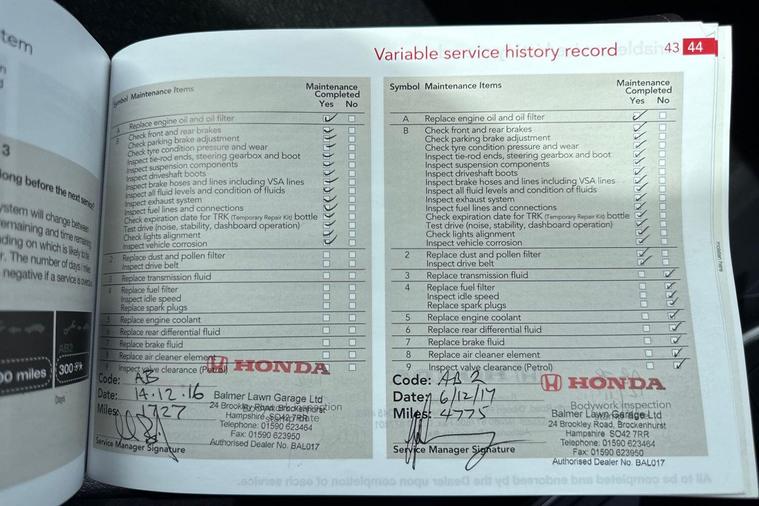 tem
3
long before the next service?
ystem will change between
emaining and time remaining
ding on which is likely to be
r. The number of days / miles
negative if a service is overdue
00 miles
300
Days
Variable service history record 43 44
Symbol Maintenance Items
Maintenance
Completed
Yes No
A Replace engine oil and oil filter
B Check front and rear brakes
Check parking brake adjustment
Check tyre condition pressure and wear
Inspect tie-rod ends, steering gearbox and boot
Inspect suspension components
Inspect driveshaft boots
Inspect brake hoses and lines including VSA lines
Inspect all fluid levels and condition of fluids
Inspect exhaust system
Inspect fuel lines and connections
Check expiration date for TRK (Temporary Repair Kit) bottle
Test drive (noise, stability, dashboard operation)
Check lights alignment
Inspect vehicle corrosion
2 Replace dust and pollen filter
Inspect drive belt
3 Replace transmission fluid
4 Replace fuel filter
Inspect idle speed
Replace spark plugs
5 Replace engine coolant
6 Replace rear differential fluid
7 Replace brake fluid
8 Replace air cleaner element
9 Inspect valve clearance (Petrol)
HONDA
Code: AB
Date: 14.12.16
Miles: 1727
Service Manager Signature
Balmer Lawn Garage Ltd
24 Brookley Road, Brockenhurst
Hampshire SO42 7RR
Telephone: 01590 623464
Fax: 01590 623950
Authorised Dealer No. BAL017
Symbol Maintenance Items
Maintenance
Completed
Yes No
A Replace engine oil and oil filter
B Check front and rear brakes
Check parking brake adjustment
Check tyre condition pressure and wear
Inspect tie-rod ends, steering gearbox and boot
Inspect suspension components
Inspect driveshaft boots
Inspect brake hoses and lines including VSA lines
Inspect all fluid levels and condition of fluids
Inspect exhaust system
Inspect fuel lines and connections
Check expiration date for TRK (Temporary Repair Kit) bottle
Test drive (noise, stability, dashboard operation)
Check lights alignment
Inspect vehicle corrosion
2 Replace dust and pollen filter
Inspect drive belt
3 Replace transmission fluid
4 Replace fuel filter
Inspect idle speed
Replace spark plugs
5 Replace engine coolant
6 Replace rear differential fluid
7 Replace brake fluid
8 Replace air cleaner element
9 Inspect valve clearance (Petrol)
HONDA
Code: AB 2
Date: 6/12/17
Miles: 4775
Service Manager Signature
Bodywork Inspection
Balmer Lawn Garage Ltd
24 Brookley Road, Brockenhurst
Hampshire SO42 7RR
Telephone: 01590 623464
Fax: 01590 623950
Authorised Dealer No. BAL017